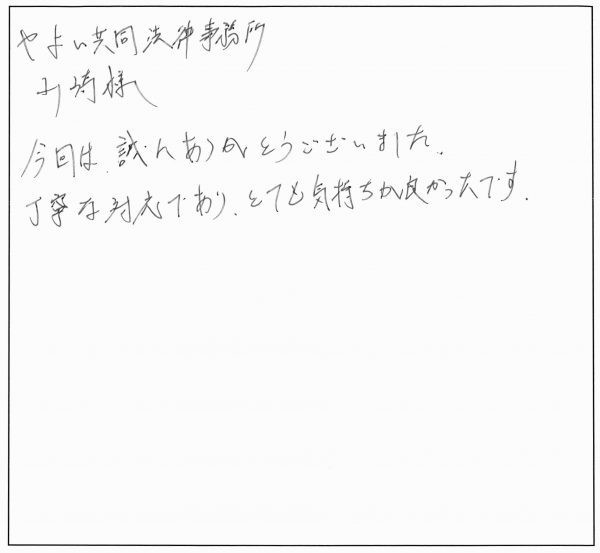 やよい共同法律事務所
山崎様
今回は、誠にありがとうございました。
丁寧な対応であり、とても気持ちが良かったです。